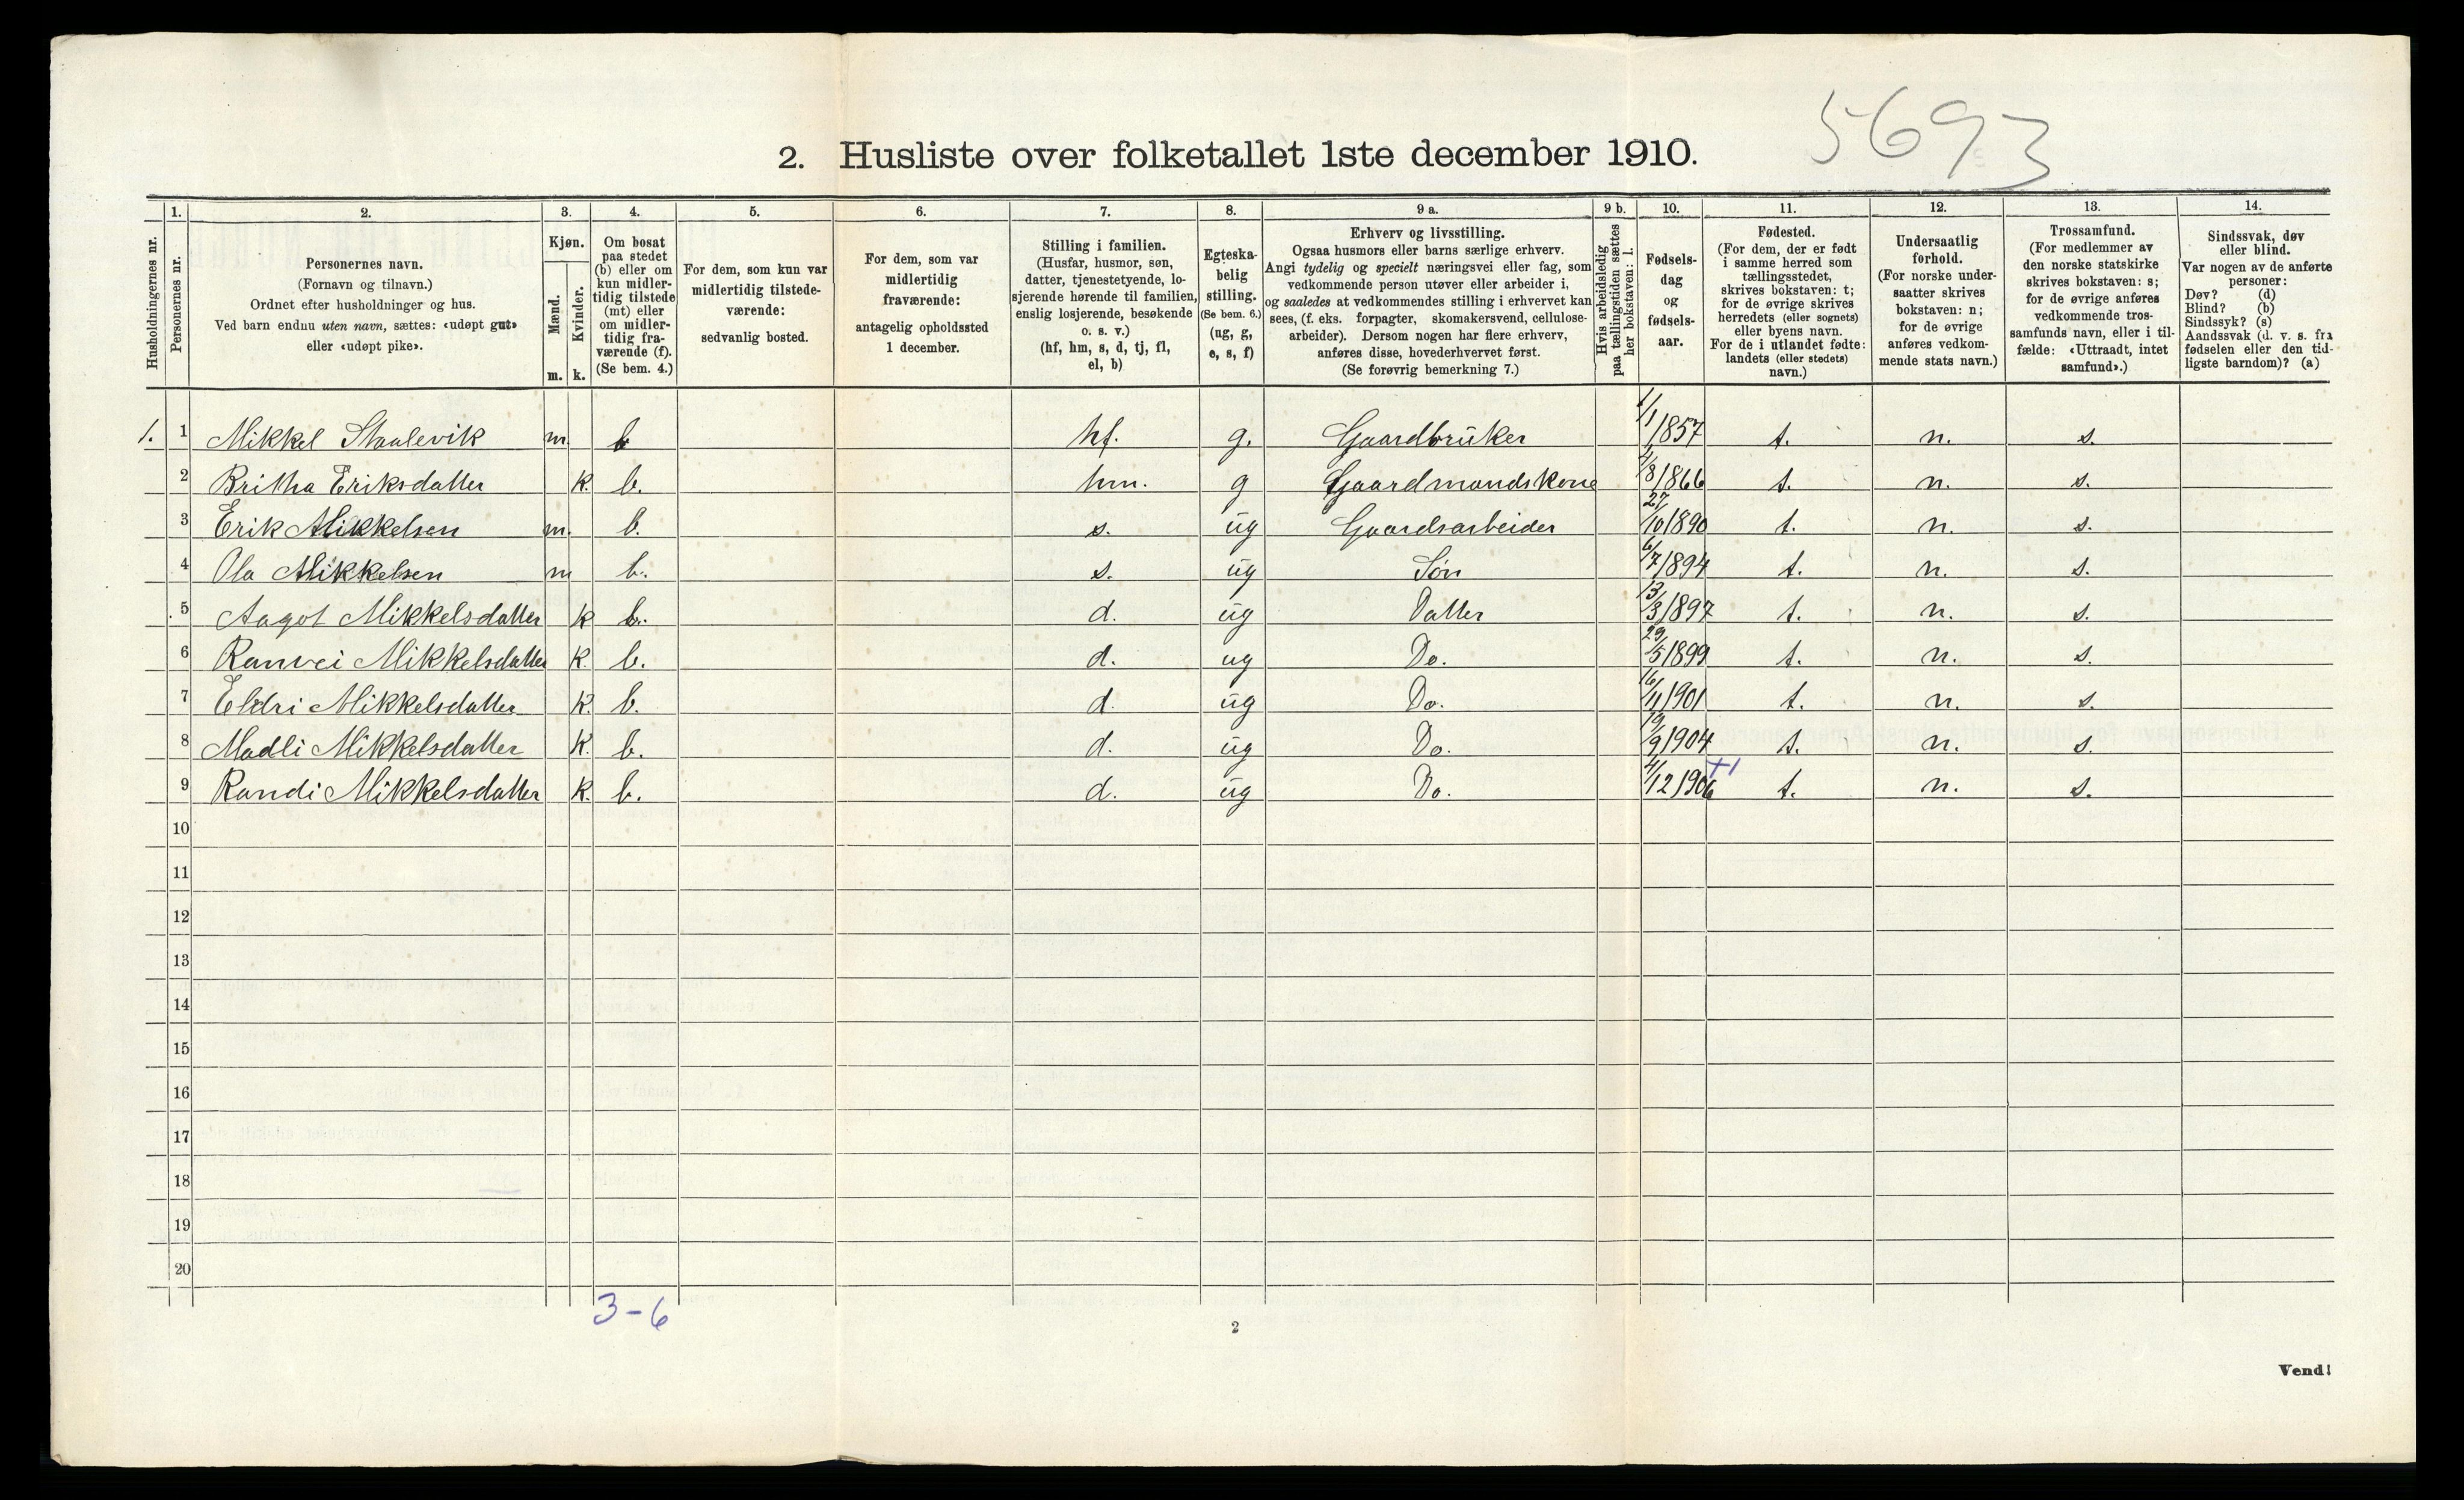 5693
2. Husliste over folketallet 1ste december 1910.
1. 2. 3. 4. 5. 6. 7. 8. 9 a. 9 b. 10. 11. 12. 13. 14.
Husholdningernes nr.
Personernes nr.
Personernes navn.
(Fornavn og tilnavn.)
Ordnet efter husholdninger og hus.
Ved barn endnu uten navn, sættes: «udøpt gut»
eller «udøpt pike».
Kjøn.
Mænd.
Kvinder.
m. k.
Om bosat
paa stedet
(b) eller om
kun midler-
tidig tilstede
(mt) eller
om midler-
tidig fra-
værende (f).
(Se bem. 4.)
For dem, som kun var
midlertidig tilstede-
værende:
sedvanlig bosted.
For dem, som var
midlertidig
fraværende:
antagelig opholdssted
1 december.
Stilling i familien.
(Husfar, husmor, søn,
datter, tjenestetyende, lo-
sjerende hørende til familien,
enslig losjerende, besøkende
o. s. v.)
(hf, hm, s, d, tj, fl,
el, b)
Egteska-
belig
stilling.
(Se bem. 6.)
(ug, g,
e, s, f)
Erhverv og livsstilling.
Ogsaa husmors eller barns særlige erhverv.
Angi tydelig og specielt næringsvei eller fag, som
vedkommende person utøver eller arbeider i,
og saaledes at vedkommendes stilling i erhvervet kan
sees, (f. eks. forpagter, skomakersvend, cellulose-
arbeider). Dersom nogen har flere erhverv,
anføres disse, hovederhvervet først.
(Se forøvrig bemerkning 7.)
Hvis arbeidsledig
paa tællingstiden sættes
her bokstaven: l.
Fødsels-
dag
og
fødsels-
aar.
Fødested.
(For dem, der er født
i samme herred som
tællingsstedet,
skrives bokstaven: t;
for de øvrige skrives
herredets (eller sognets)
eller byens navn.
For de i utlandet fødte:
landets (eller stedets)
navn.)
Undersaatlig
forhold.
(For norske under-
saatter skrives
bokstaven: n;
for de øvrige
anføres vedkom-
mende stats navn.)
Trossamfund.
(For medlemmer av
den norske statskirke
skrives bokstaven: s;
for de øvrige anføres
vedkommende tros-
samfunds navn, eller i til-
fælde: «Uttraadt, intet
samfund».)
Sindssvak, døv
eller blind.
Var nogen av de anførte
personer:
Døv? (d)
Blind? (b)
Sindssyk? (s)
Aandssvak (d. v. s. fra
fødselen eller den tid-
ligste barndom)? (a)
1. 1 Mikkel Staalevik m. b hf. g. Gaardbruker 1/1 1857 t. n. s.
2 Britha Eriksdatter k. b. hm. g Gaardmandskone 4/8 1866 t. n. s.
3 Erik Mikkelsen m. b. s. ug Gaardsarbeider 27/10 1890 t. n. s.
4 Ola Mikkelsen m b. s. ug Søn 6/7 1894 t. n. s.
5 Aagot Mikkelsdatter k b. d. ug Datter 13/3 1897 t. n. s.
6 Ranvei Mikkelsdatter k. b. d. ug Do. 29/5 1899 t. n. s.
7 Eldri Mikkelsdatter k. b. d. ug Do. 16/11 1901 t. n. s.
8 Madli Mikkelsdatter k. b. d. ug Do. 19/9 1904 t. n. s.
9 Randi Mikkelsdatter k. b. d. ug Do. 4/12 1906 +1 t. n. s.
10
11
12
13
14
15
16
17
18
19
20
3-6
2
Vend!